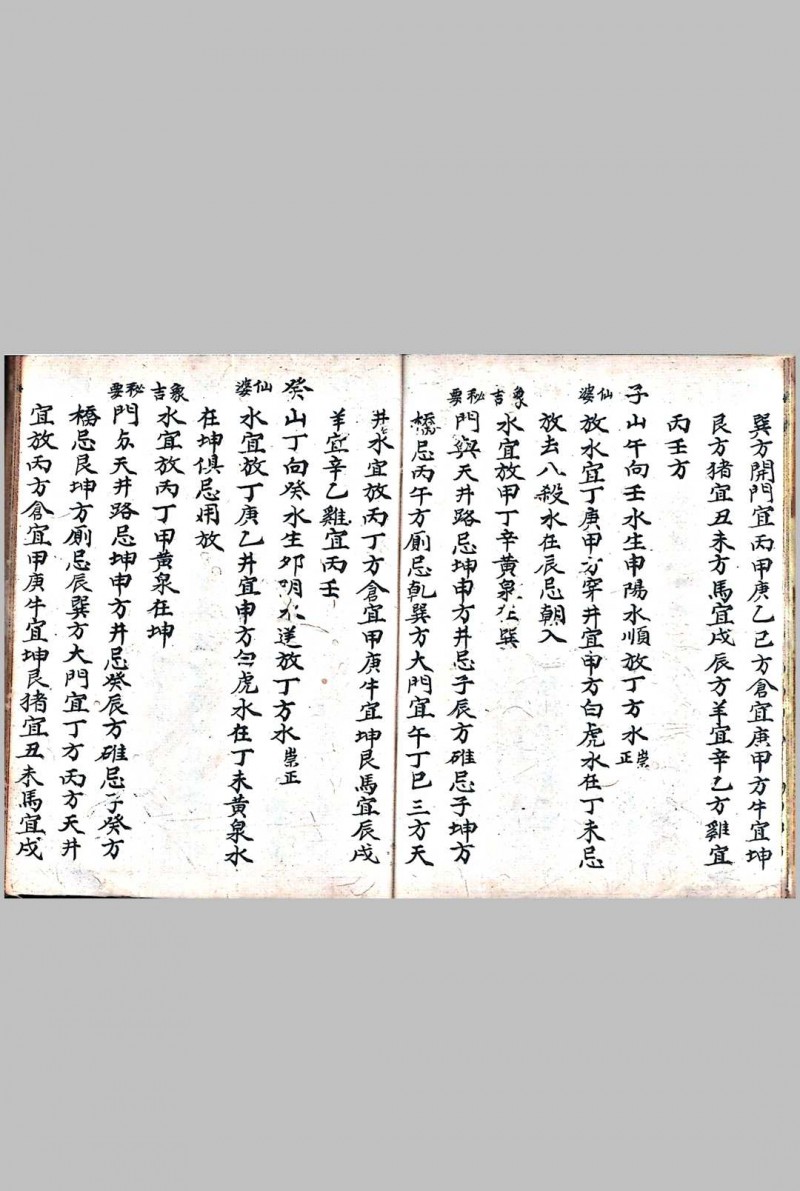 巽方開門宜丙甲庚乙己方倉宜庚甲方牛宜坤
艮方猪宜丑未方馬宜戌辰方羊宜辛乙方雞宜
丙壬方
子山午向壬水生申陽水順放丁方水崇正
仙婆
放水宜丁庚甲方穿井宜申方白虎水在丁未忌
放去八殺水在辰忌朝入
象吉
水宜放甲丁辛黄泉在巽
秘要
門與天井路忌坤申方井忌子辰方碓忌子坤方
橋忌丙午方廁忌乹巽方大門宜午丁巳三方天
井水宜放丙丁方倉宜甲庚牛宜坤艮馬宜辰戌
羊宜辛乙雞宜丙壬
癸山丁向癸水生夘明水逆放丁方水崇正
仙婆
水宜放丁庚乙井宜申方白虎水在丁未黄泉水
在坤俱忌用放
象吉
水宜放丙丁甲黄泉在坤
秘要
門与天井路忌坤申方井忌癸辰方碓忌子癸方
橋忌艮坤方廁忌辰巽方大門宜丁方丙方天井
宜放丙方倉宜甲庚牛宜坤艮猪宜丑未馬宜戌